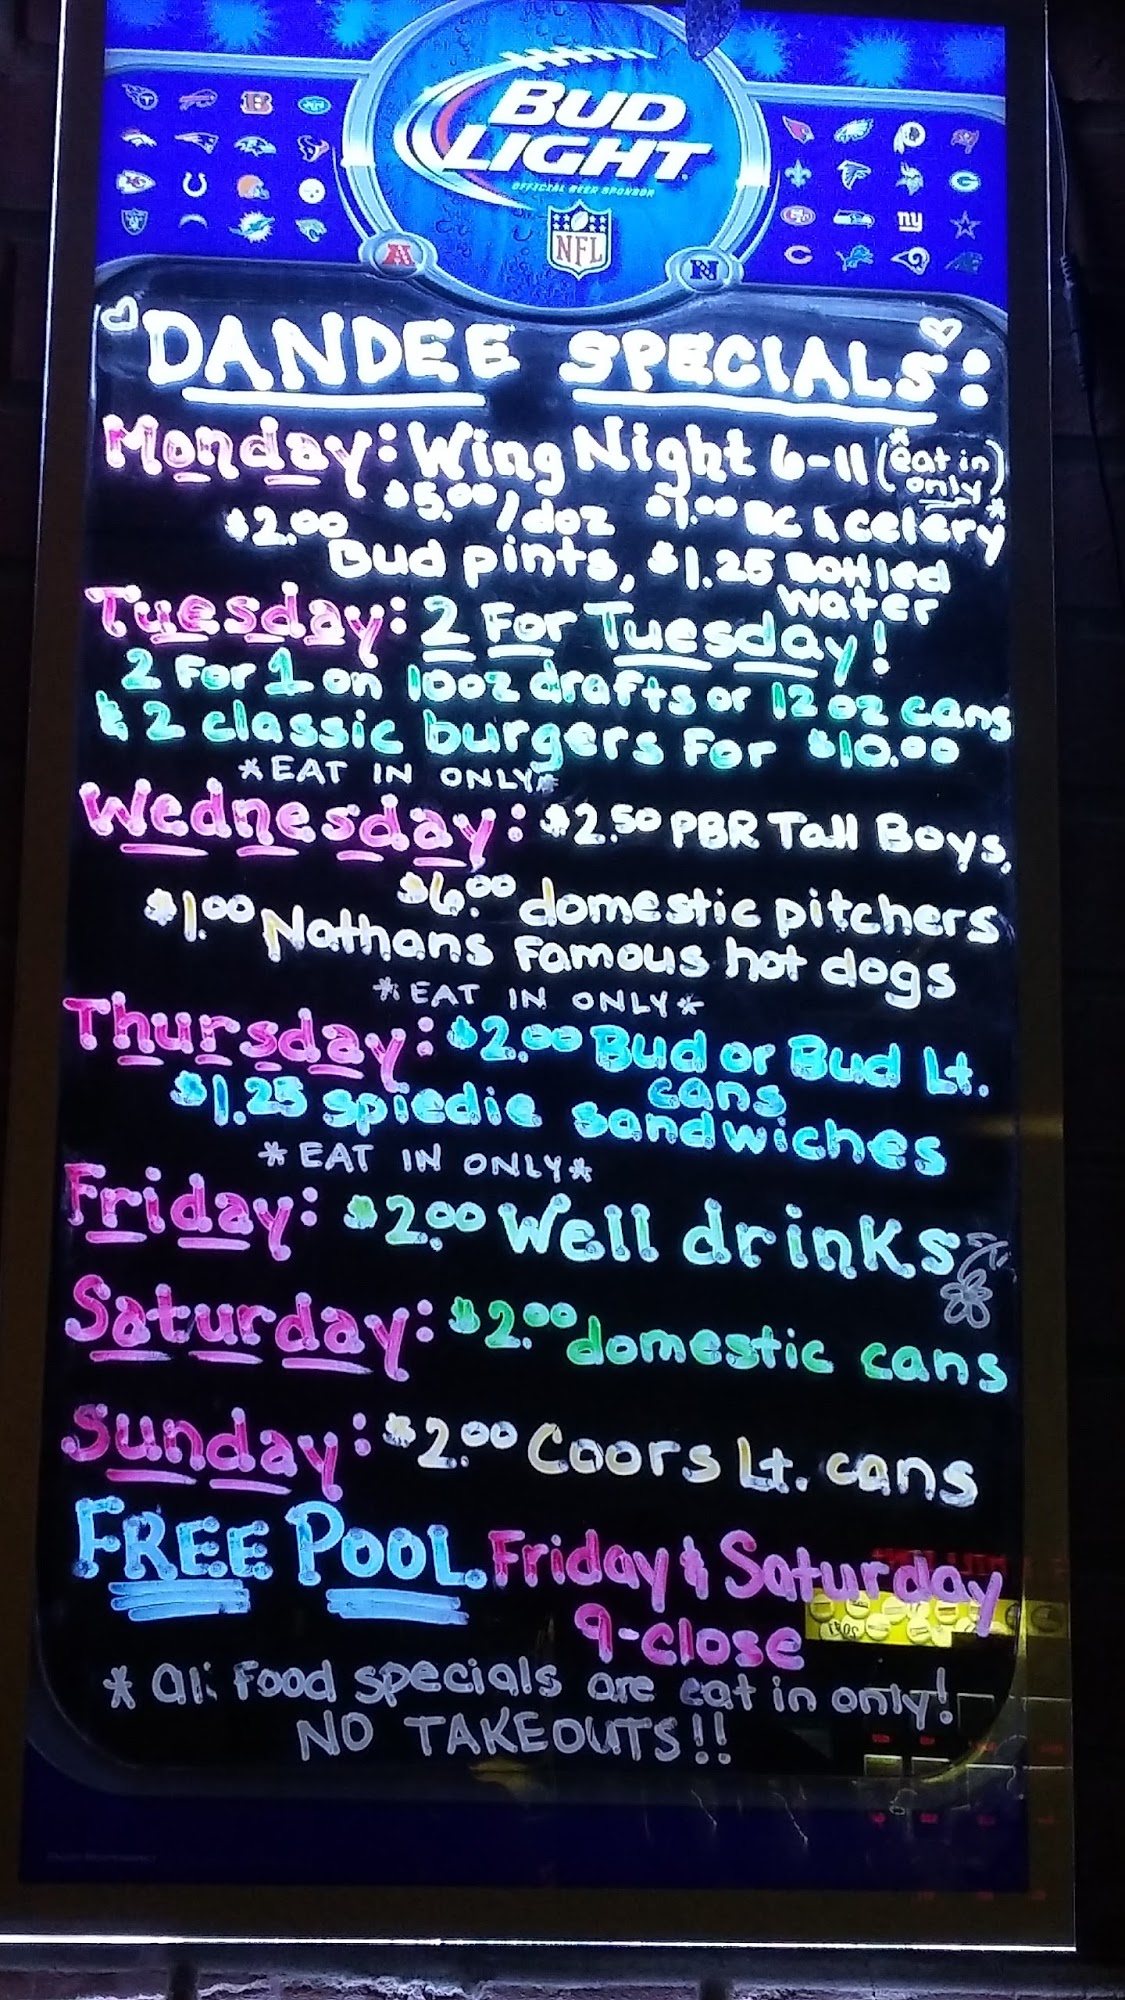 BUD
LIGHT
OFFICIAL BEER SPONSOR
NFL
DANDEE SPECIALS:
Monday: Wing Night 6-11 (*eat in only*)
$5.00/doz $1.00 BC & celery
$2.00 Bud pints, $1.25 Bottled water
Tuesday: 2 For Tuesday!
2 For 1 on 10oz drafts or 12oz cans
& 2 classic burgers For $10.00
*EAT IN ONLY*
Wednesday: $2.50 PBR Tall Boys,
$6.00 domestic pitchers
$1.00 Nathans Famous hot dogs
*EAT IN ONLY*
Thursday: $2.00 Bud or Bud Lt. cans
$1.25 spiedie sandwiches
*EAT IN ONLY*
Friday: $2.00 Well drinks
Saturday: $2.00 domestic cans
Sunday: $2.00 Coors Lt. cans
FREE POOL Friday & Saturday
9-close
* All Food specials are eat in only!
NO TAKEOUTS!!